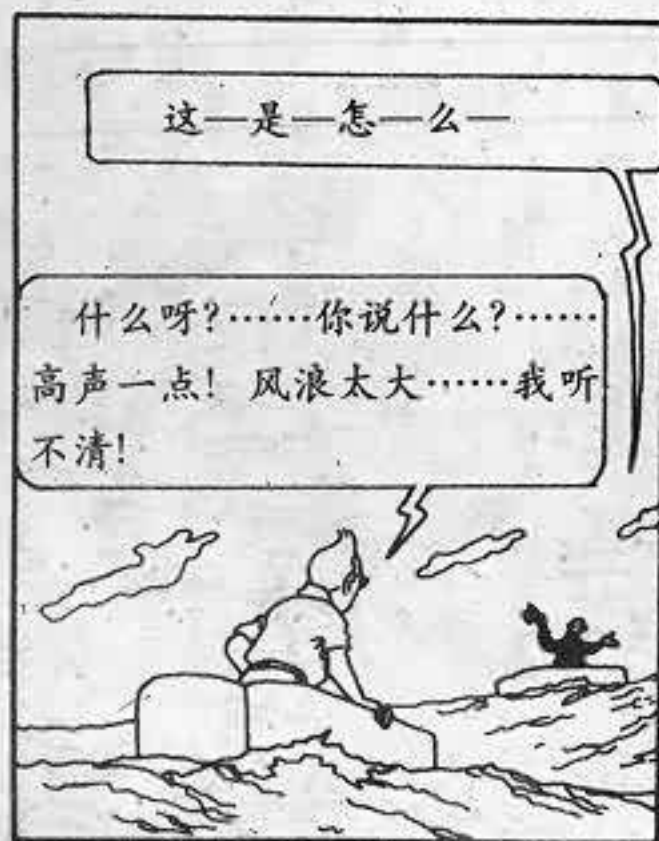 这—是—怎—么—
什么呀？……你说什么？……
高声一点！风浪太大……我听
不清！